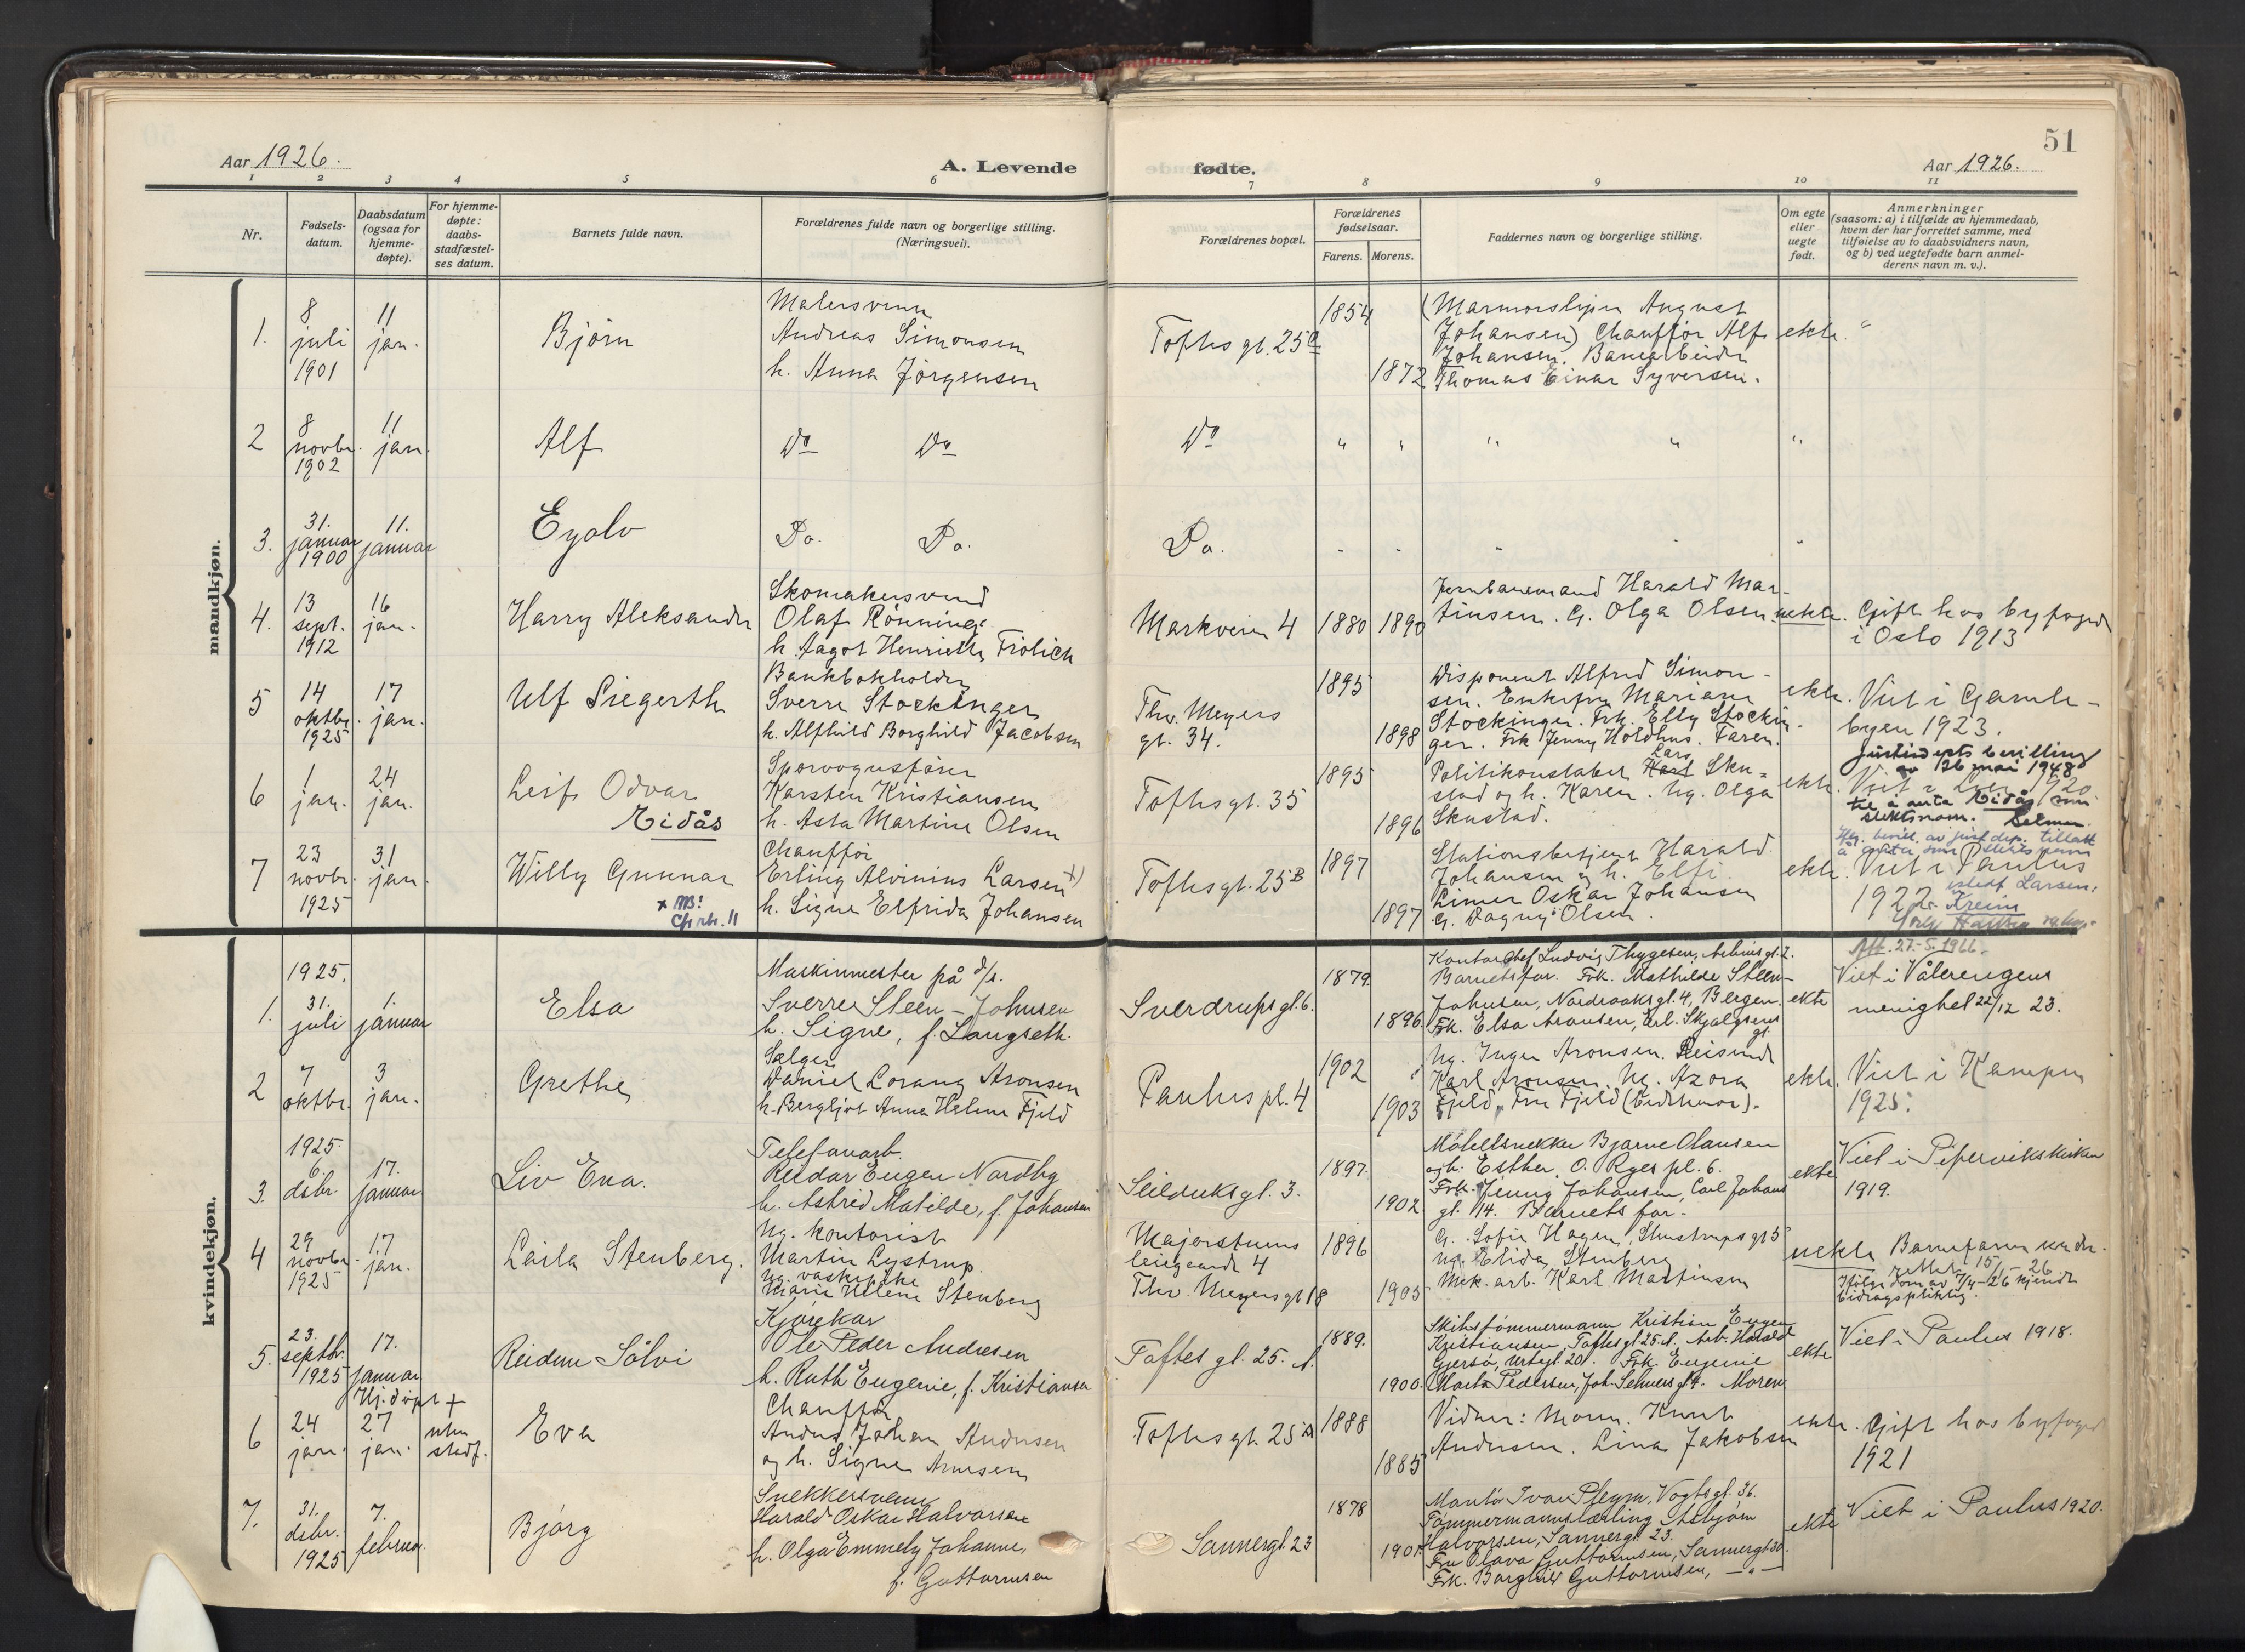 Aar 1926.
A. Levende
fødte.
51
Aar 1926.
1 2 3 4 5 6 7 8 9 10 11
Nr.
Fødsels-
datum.
Daabsdatum
(ogsaa for
hjemme-
døpte).
For hjemme-
døpte:
daabs-
stadfæstel-
ses datum.
Barnets fulde navn.
Forældrenes fulde navn og borgerlige stilling.
(Næringsvei).
Forældrenes bopæl.
Forældrenes
fødselsaar.
Farens. Morens.
Faddernes navn og borgerlige stilling.
Om egte
eller
uegte
født.
Anmerkninger
(saasom: a) i tilfælde av hjemmedaab,
hvem der har forrettet samme, med
tilføielse av to daabsvidners navn,
og b) ved uegtefødte barn anmel-
derens navn m. v.).
mandkjøn.
1.
8
juli
1901
11
jan.
Bjørn
Malersvenn
Andreas Simonsen
h. Anna Jørgensen
Toftesgt. 25C
1854
1872
(Marmorsliper August
Johansen) Chauffør Alf
Johansen. Banearbeider
Thomas Einar Syversen.
ekte.
2
8
novbr.
1902
11
jan.
Alf
Do Do
Do
" " " " "
3.
31.
januar
1900
11.
januar
Eyolv
Do. Do.
Do.
4.
13
sept.
1912
16
jan.
Harry Aleksander
Skomakersvend
Olaf Rønning
h. Aagot Henriette Frølich
Markveien 4
1880
1890
Jernbanemand Harald Mar-
tinsen. G. Olga Olsen.
uekte.
Gift hos byfoged
i Oslo 1913
5
14
oktbr.
1925
17
jan.
Ulf Siegerth
Bankbokholder
Sverre Stockinger
h. Alfhild Borghild Jacobsen
Thv. Meyers
gt. 34.
1895
1898
Disponent Alfred Simon-
sen. Enkefru Mariane
Stockinger. Frk. Elly Stockin-
ger. Frk Jenny Holdhus. Faren.
ekte.
Viet i Gamle-
byen 1923.
6
1
jan.
24
jan.
Leif Odvar
Eidås
Sporvognsfører
Karsten Kristiansen
h. Asta Martine Olsen
Toftesgt. 35
1895
1896
Lars
Politikonstabel Karl Sku-
stad og h. Karen. Ug. Olga
Skustad.
ekte.
Justisdepts bevilling
av 26 mai 1948
Viet i 1920
til å anta Eidås som
slektsnavn. Selmer.
7
23
novbr.
1925
31
jan.
Willy Gunnar
x NB!
Chauffør
Erling Alvinius Larsen x)
h. Signe Elfrida Johansen
Toftesgt. 25B
1897
1897
Stationsbetjent Harald
Johansen og h. Elfi.
Einer Oskar Johansen
G. Dagny Olsen.
ekte.
bevil. av just.dep. tillatt
å anta som slektsnavn
Viet i Paulus
1922.
istedf. Larsen:
27.-5.1966.
kvindekjøn.
1.
1925.
31.
juli
1.
januar
Elsa
Maskinmester på d/s.
Sverre Steen-Johnsen
h. Signe, f. Langseth.
Sverdrupsgt. 6.
1879.
1896
Kontorchef Ludvig Thygesen,
Barnets far. Frk. Mathilde Steen-
Johnsen, Nordraaksgt. 4, Bergen.
Frk. Elsa Aronsen, Erl. Skjalgsens
gt.
ekte
Viet i Vålerengens
menighet 22/12 23.
2
7
oktbr.
3
jan.
Grethe
Sælger
Daniel Lorang Aronsen
h. Bergljot Anna Helene Fjeld
Paulus pl. 4
1902
1903
Ug. Inger Aronsen. Reisende
Karl Aronsen. Ug. Azora
Fjeld. Fru Fjeld (bedstemor).
ekte.
Viet i Kampen
1925.
3.
1925.
6.
dsbr.
17.
januar
Liv Eva.
Telefonarb.
Reidar Eugen Nordby
h. Astrid Matilde, f. Johansen
Seilduksgt. 3.
1897.
1902.
Møbelsnekker Bjarne Olausen
og h. Esther, O. Ryes pl. 6.
Frk. Jenny Johansen, Carl Johans
gt. 14. Barnets far.
ekte
Viet i Pipervikskirken
1919.
4
29
novbr.
1925
17
jan.
Laila Stenberg.
Ug. kontorist
Martin Lystrup
Ug. vaskepike
Marie Helene Stenberg
Majorstuens
leiegaarde 4
Thv. Meyersgt 18
1896
1905
G. Sofie Hagen,
Ug. Elida Stenberg
Mek. arb. Karl Martinsen
uekte
Barnefaren
15/1 - 26
Ifølge dom av 7/4-26 kjendt
bidragspliktig.
5.
23.
septbr.
1925
17.
januar
Reidun Sølvi
Kjørekar
Ole Peder Andresen
h. Ruth Eugenie, f. Kristiansen
Toftes gt. 25. A.
1889.
1900.
Skibstømmermann Kristian Eugen
Kristiansen, Toftesgt. 25. A. Arb. Harald
Gjersø, Urtegt. 20. Frk. Eugenie
Marta Pedersen, Joh. Selmersgt. 4. Moren
ekte
Viet i Paulus 1918.
6
24
jan.
Hj. døpt +
27
jan.
uten
stadf.
Eva
Chauffør
Anders Johan Andersen
og h. Signe Arnesen
Toftesgt. 25A
1888
1885
Vidner: Moren. Knut
Andersen. Lina Jakobsen
ekte.
Gift hos byfoged
1921
7.
31.
dsbr.
1925
7.
februar.
Bjørg
Snekkersvenn
Harald Oskar Halvorsen
h. Olga Emmely Johanne,
f. Guttormsen
Sannergt. 23
1878
1901
Montør Ivar Vogtsgt. 36.
Tømmermannslærling Asbjørn
Halvorsen, Sannergt. 23.
Fru Olava Guttormsen, Sannergt 30.
Frk. Borghild Guttormsen, — " —
ekte
Viet i Paulus 1920.